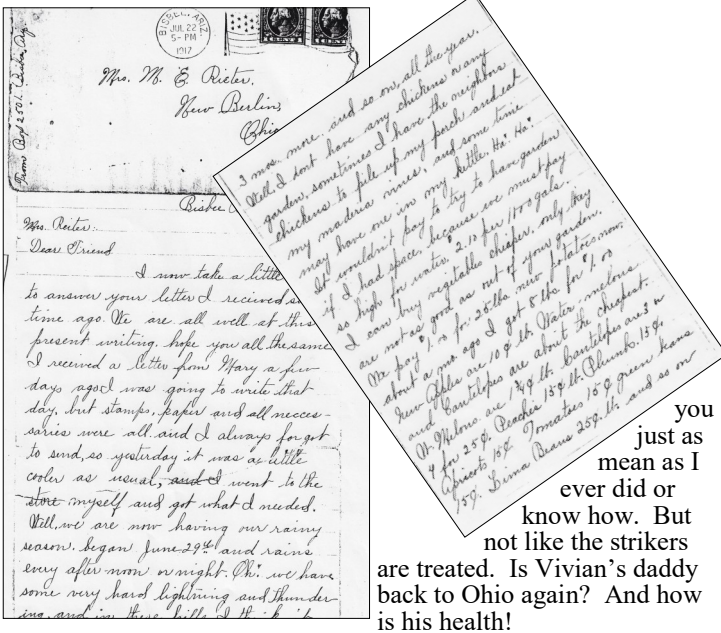 BISBEE, ARIZ.
JUL 22
5-PM
1917
From Box 2501. Bisbee, Ariz
Mrs. M. E. Rieter.
New Berlin,
Ohio
Bisbee
Mrs. Reiter:
Dear Friend
I now take a little
to answer your letter I received
time ago. We are all well at this
present writing, hope you all the same
I received a letter from Mary a few
days ago I was going to write that
day, but stamps, paper and all necces-
saries were all and I always forgot
to send, so yesterday it was a little
cooler as usual, and I went to the
store myself and got what I needed.
Well, we are now having our rainy
season, began June 29th and rains
every after noon or night. Oh! we have
some very hard lightning and thunder-
ing, and in these hills I think
3 mos. more, and so on all the year.
Well I dont have any chickens or any
garden, sometimes I have the neighbors
chickens to file up my porch and eat
my maderia vines, and some time
may have one in my kettle. Ha! Ha!
It wouldn't pay to try to have garden
if I had space, because we must pay
so high for water, $2.10 per 1100 gals.
I can buy vegetables cheaper, only they
are not as good as out of your garden.
We pay $1.00 for 25 lbs new potatoes now.
about a mo. ago I got 8 lbs for $1.00
New Apples are 10¢ lb. Water-melons
and Cantelopes are about the cheapest.
W. Melons are 1¾¢ lb. Cantelopes are 3 or
4 for 25¢. Peaches 15¢ lb. Plumbs. 15¢,
Apricots 15¢ Tomatoes 15¢ green beans
15¢. Lima Beans 25¢. lb. and so on
you
just as
mean as I
ever did or
know how.  But
not like the strikers
are treated.  Is Vivian’s daddy
back to Ohio again?  And how
is his health!